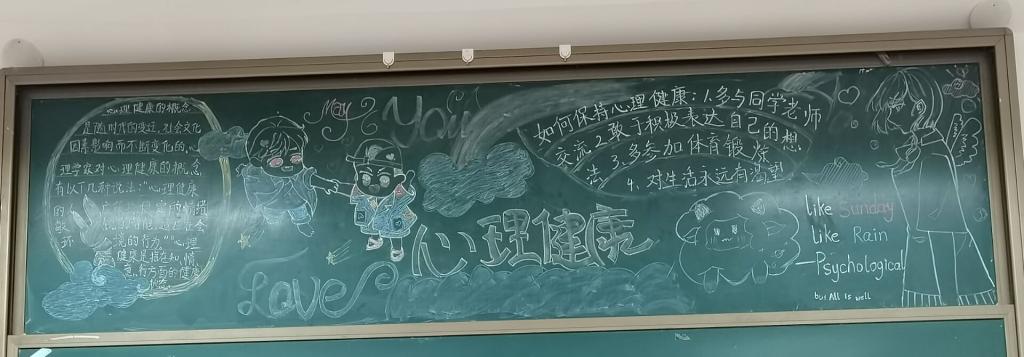 心理健康的概念
是随时代的变迁、社会文化
因素影响而不断变化的。
理学家对心理健康的概念
有以下几种说法："心理健康
的
环境的行为""心理
健康是指在知、情、
意、行方面的健康
状态。
May
You
Love
心理健康
如何保持心理健康：1.多与同学老师
交流 2.敢于积极表达自己的想
法 3.多参加体育锻炼
4.对生活永远有渴望
like Sunday
Like Rain
Psychological
but All is well